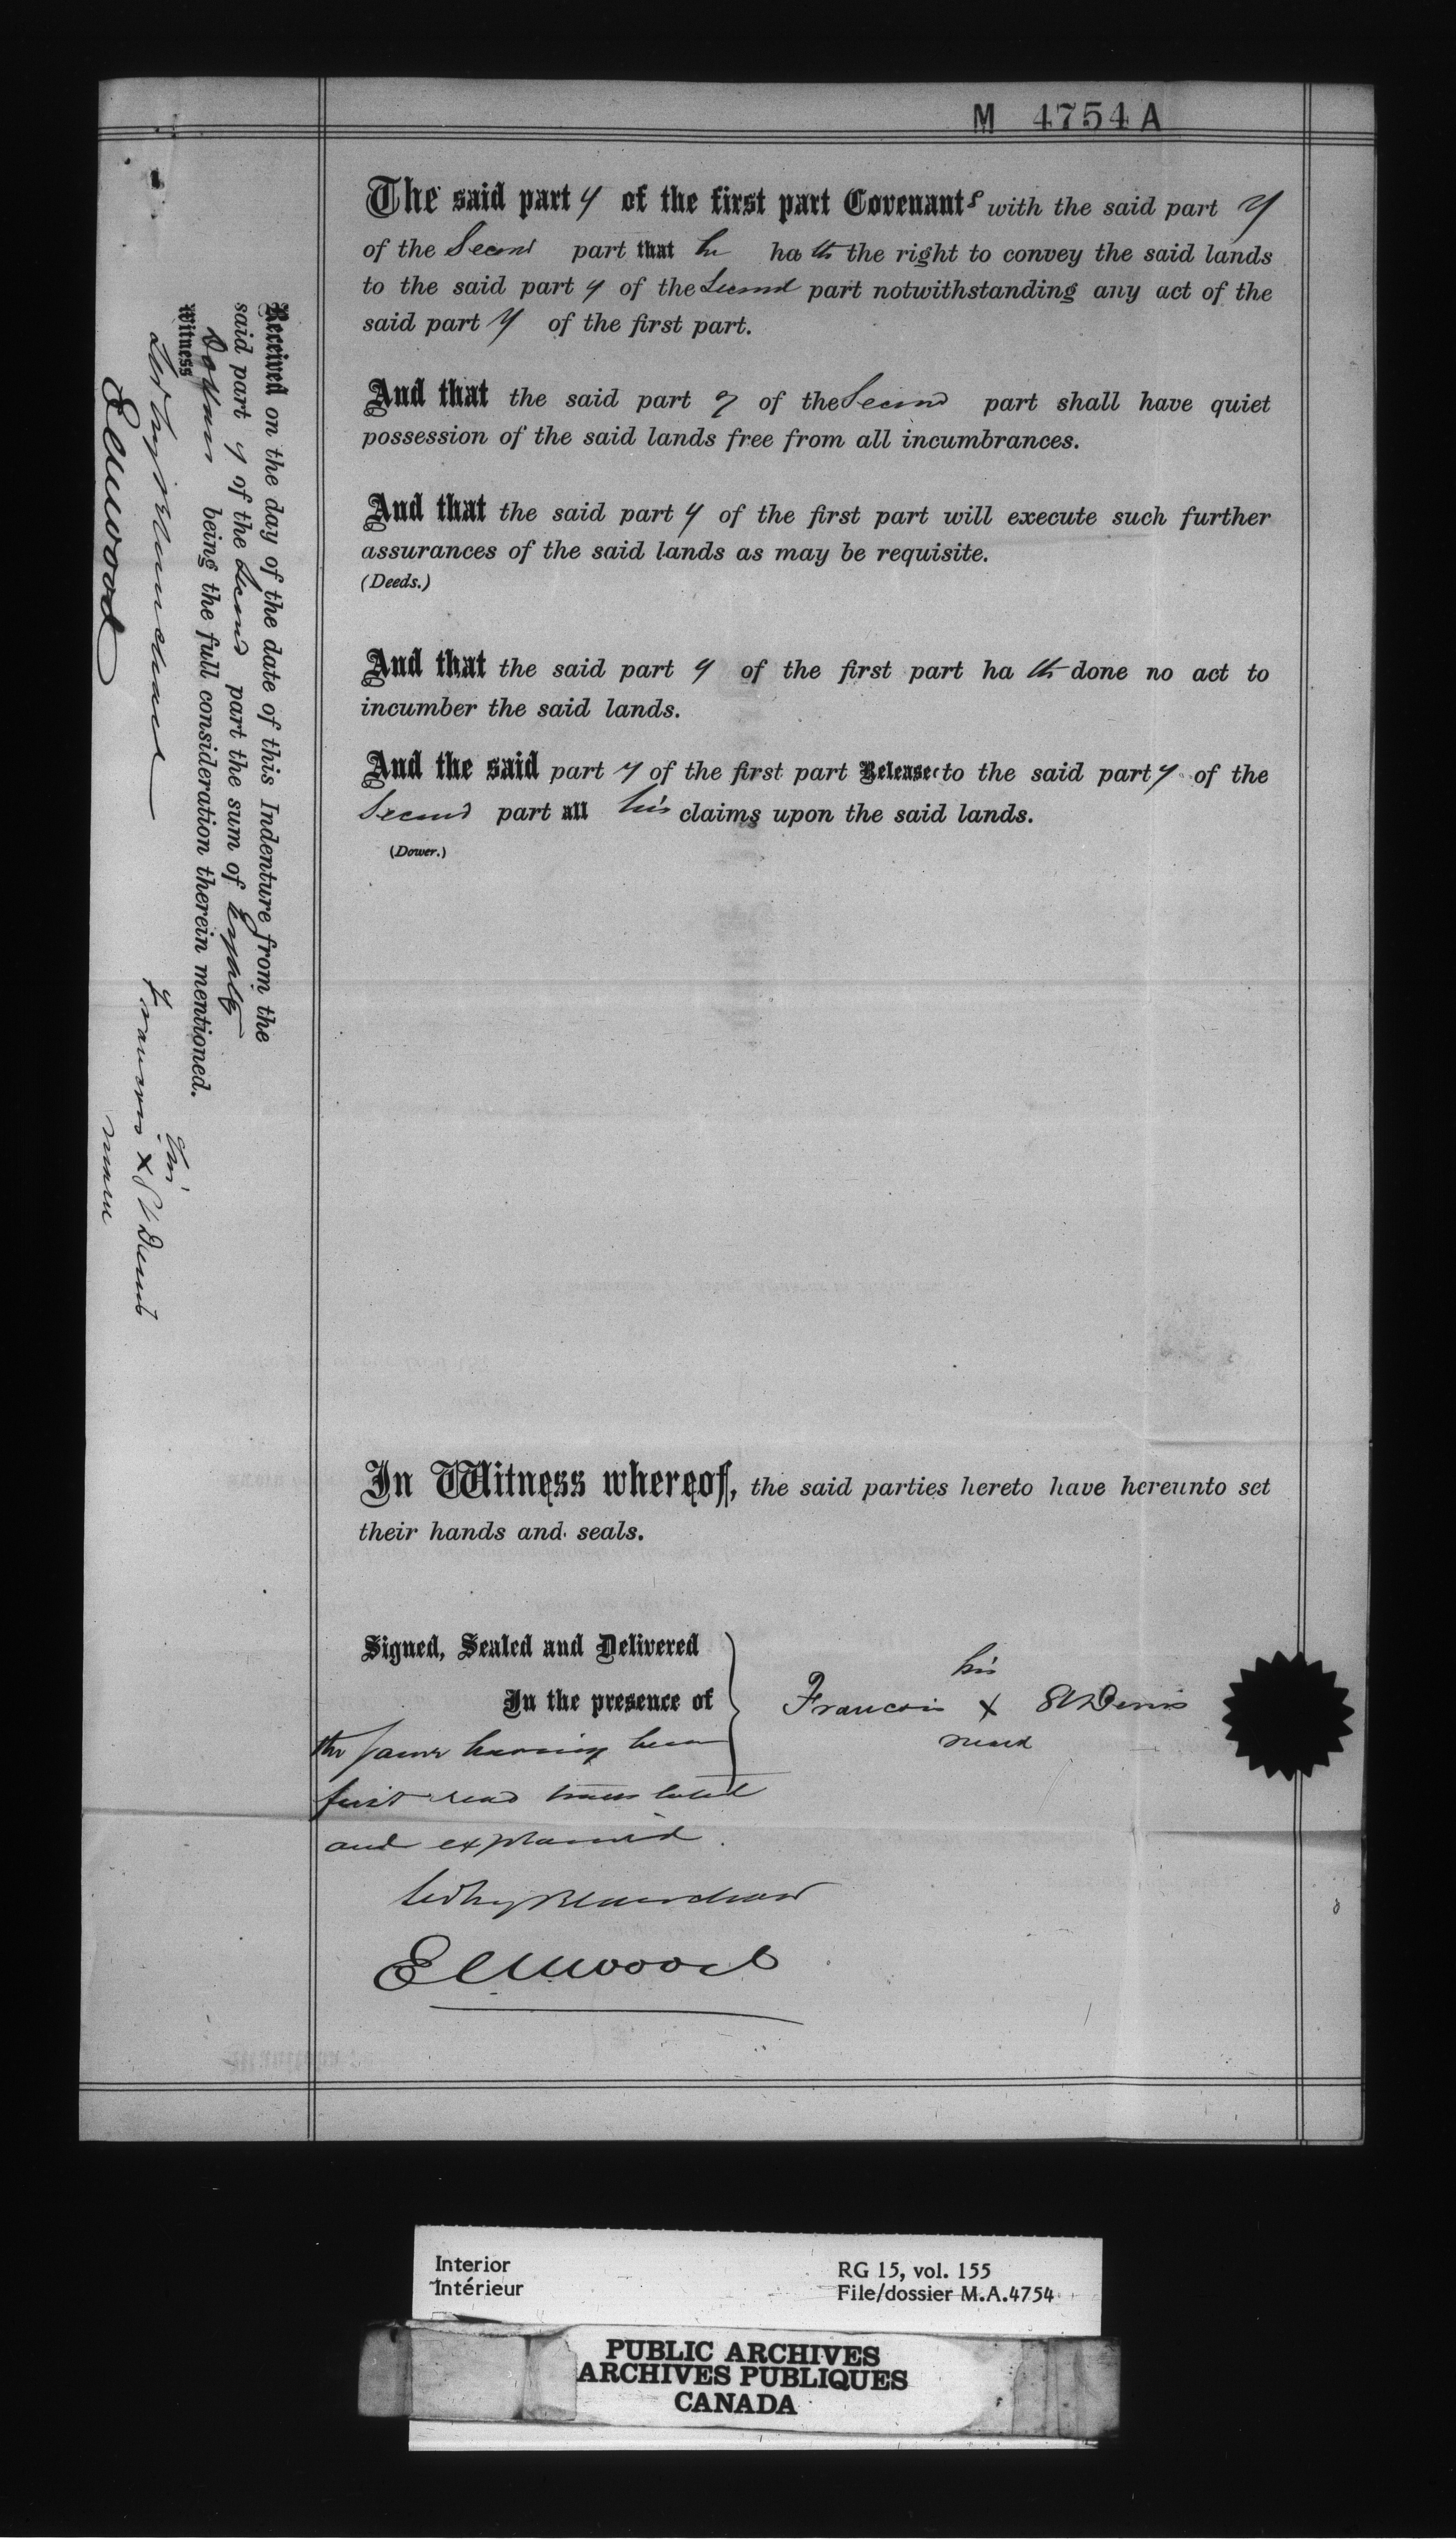 M 4754 A
The said party of the first part Covenants with the said party
of the Second part that he hath the right to convey the said lands
to the said party of the Second part notwithstanding any act of the
said party of the first part.
And that the said party of the Second part shall have quiet
possession of the said lands free from all incumbrances.
And that the said party of the first part will execute such further
assurances of the said lands as may be requisite.
(Deeds.)
And that the said party of the first part hath done no act to
incumber the said lands.
And the said party of the first part Releases to the said party of the
Second part all his claims upon the said lands.
(Dower.)
In Witness whereof, the said parties hereto have hereunto set
their hands and seals.
Signed, Sealed and Delivered
In the presence of
the same having been
first read translated
and explained.
his
Francois X St Denis
mark
Received on the day of the date of this Indenture from the
said party of the Second part the sum of Eighty
Dollars being the full consideration therein mentioned.
Witness
his
Francois X St Denis
mark
Interior
Intérieur
RG 15, vol. 155
File/dossier M.A.4754
PUBLIC ARCHIVES
ARCHIVES PUBLIQUES
CANADA